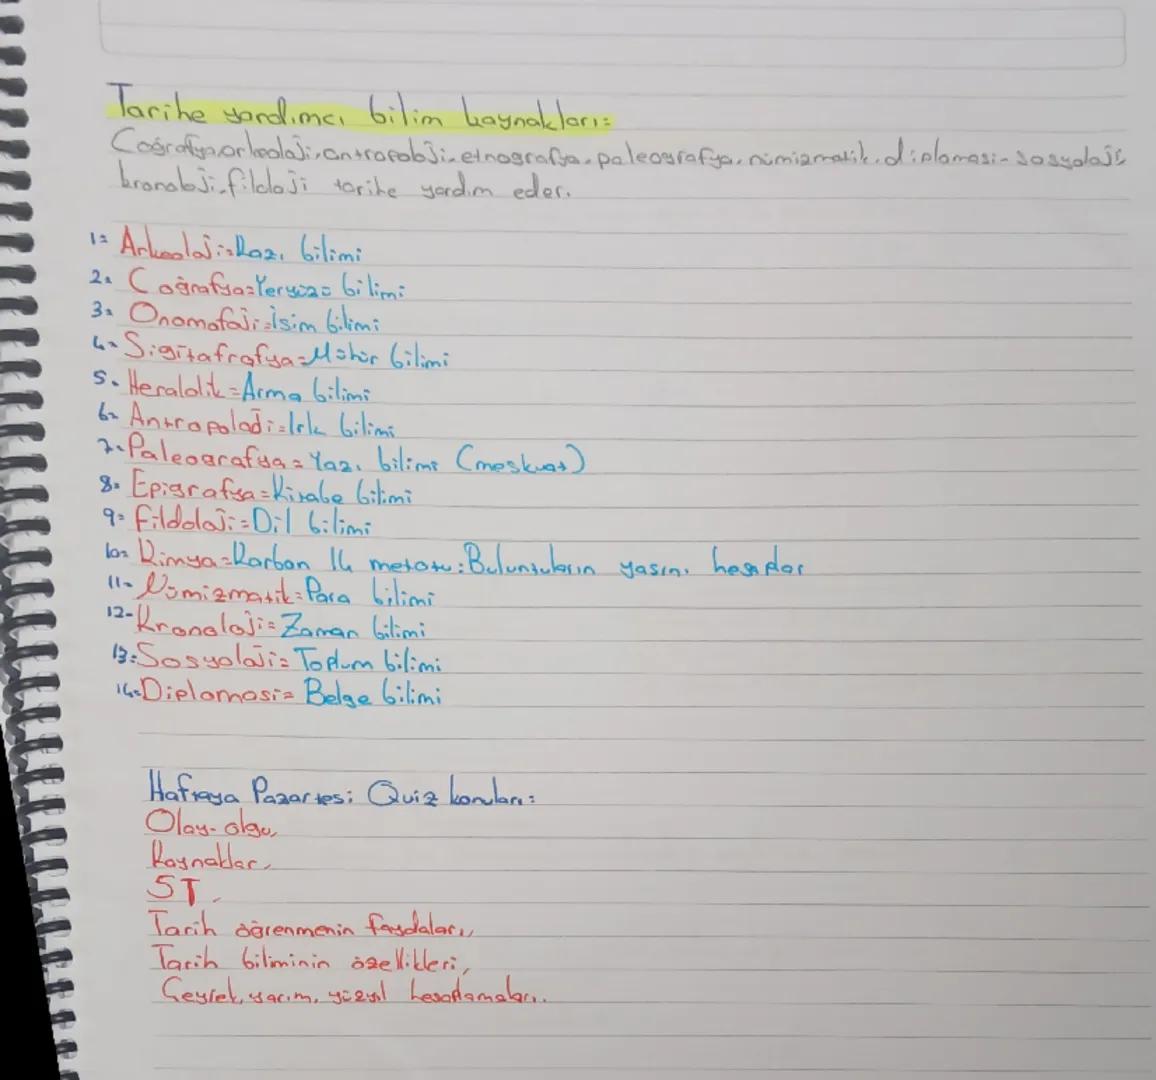 Tarihe yardımcı bilim kaynakları:
Coğrafya, arkeoloji, antropoloji, etnografya, paleografya, nümizmatik, diplomasi, sosyoloji
kronoloji, filoloji tarihe yardım eder.
1= Arkeoloji= Kazı bilimi
2= Coğrafya= Yeryüzü bilimi
3= Onomofoji= İsim bilimi
4= Sigitafrafya= Mühür bilimi
5. Heraldik= Arma bilimi
6= Antropoladi= Irk bilimi
7= Paleografya= Yazı bilimi (meskuat)
8= Epigrafya= Kitabe bilimi
9= fildoloji= Dil bilimi
10= Kimya= Karbon 14 metotu: Buluntuların yaşını hesaplar
11= Nümizmatik= Para bilimi
12- Kronoloji= Zaman bilimi
13= Sosyoloji= Toplum bilimi
14= Diplomasi= Belge bilimi
Haftaya Pazartesi Quiz konuları:
Olay-olgu,
Kaynaklar,
5T,
Tarih öğrenmenin faydaları,,
Tarih biliminin özellikleri,
Çeyrek, yarım, yüzyıl hesaplamaları..